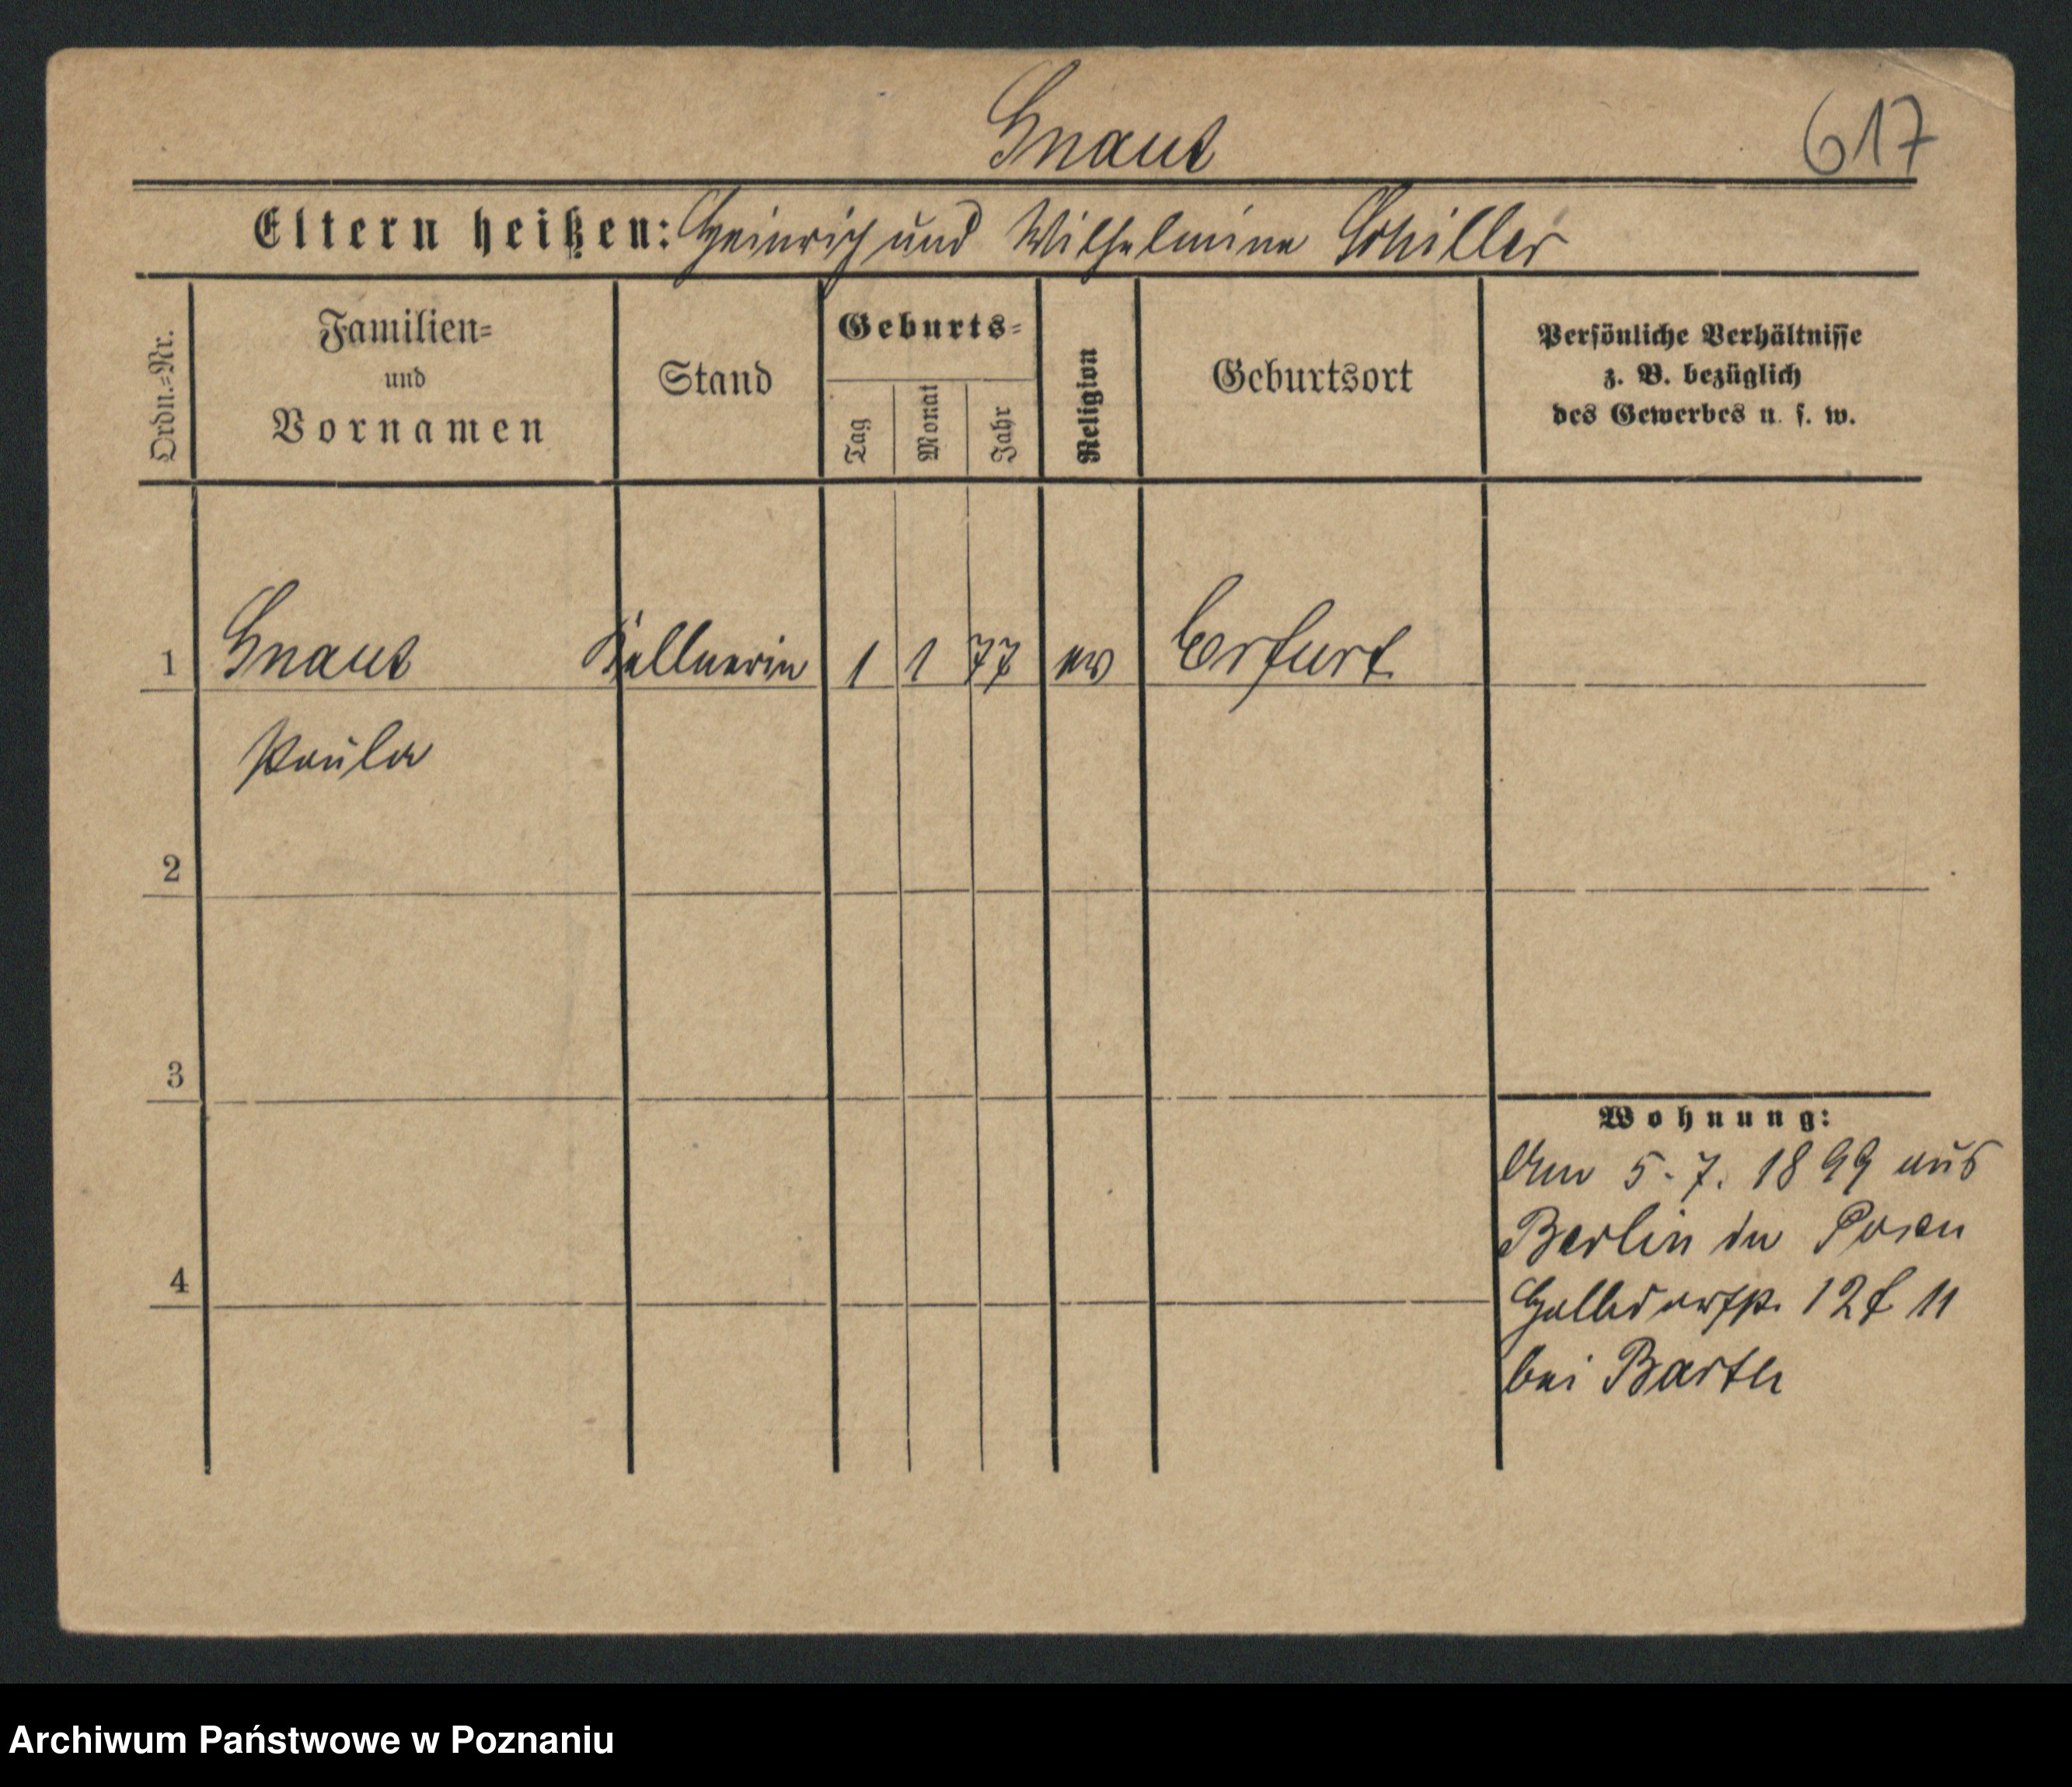 Gnaus
617
Eltern heißen: Heinrich und Wilhelmine Schiller
Ordn.=Nr.
Familien=
und
Vornamen
Stand
Geburts=
Tag
Monat
Jahr
Religion
Geburtsort
Persönliche Verhältnisse
z. B. bezüglich
des Gewerbes u. s. w.
1 Gnaus Kellnerin 1 1 77 ev Erfurt
Paula
2
3
4
Wohnung:
Am 5.7. 1899 aus
Berlin in Posen
12 11
bei Barth
Archiwum Państwowe w Poznaniu